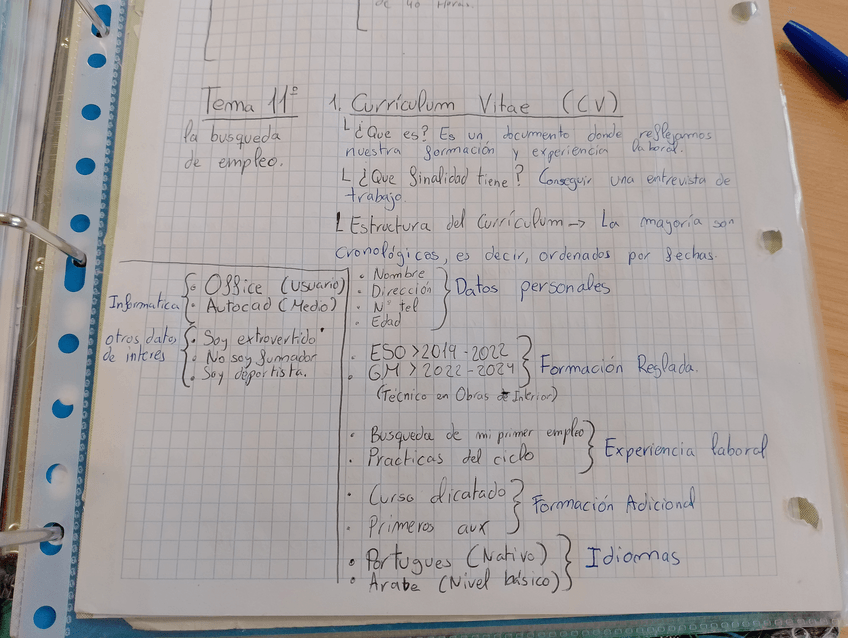 de 40 Horas.
Tema 11º
la busqueda
de empleo.
1. Currículum Vitae (CV)
¿Que es? Es un documento donde reflejamos
nuestra formación y experiencia laboral.
¿Que finalidad tiene? Conseguir una entrevista de
trabajo
Estructura del Currículum → La mayoría son
cronológicos, es decir, ordenados por fechas.
· Nombre
· Dirección
· Nº tel
· Edad
Datos personales
· ESO > 2019-2022
· GM > 2022-2024
(Técnico en Obras de Interior)
Formación Reglada.
· Busqueda de mi primer empleo
· Practicas del ciclo
Experiencia laboral
· Curso
· Primeros aux
Formación Adicional
· Portugues (Nativo)
· Arabe (Nivel básico)
Idiomas
Informatica
· Office (Usuario)
· Autocad (Medio)
otros datos
de interes
· Soy extrovertido
· No soy fumador
· Soy deportista.